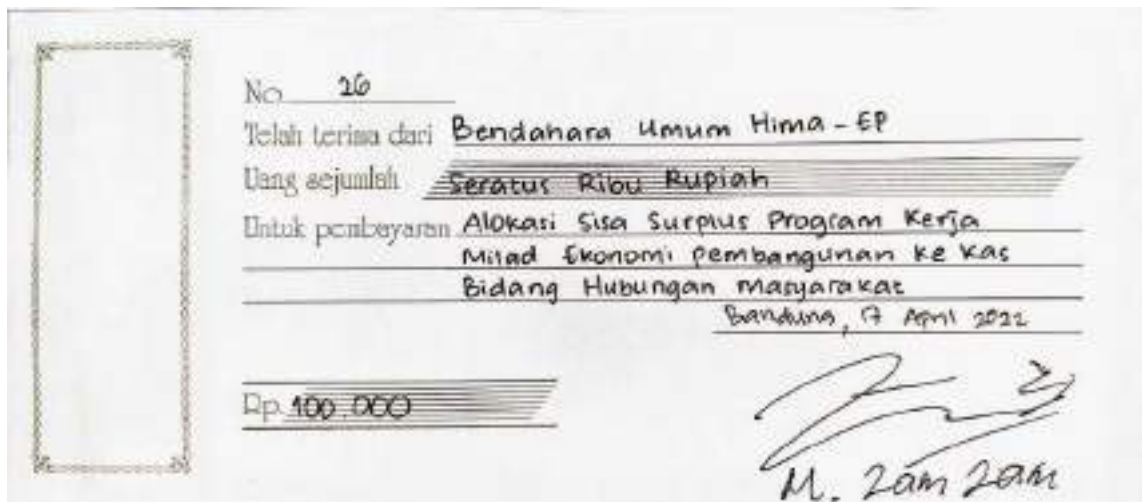 No 26
Telah terima dari Bendahara Umum Hima - EP
Uang sejumlah Seratus Ribu Rupiah
Untuk pembayaran Alokasi Sisa Surplus Program Kerja
Milad Ekonomi Pembangunan ke Kas
Bidang Hubungan Masyarakat
Bandung, 17 April 2022
Rp. 100.000
M. Zam Zam